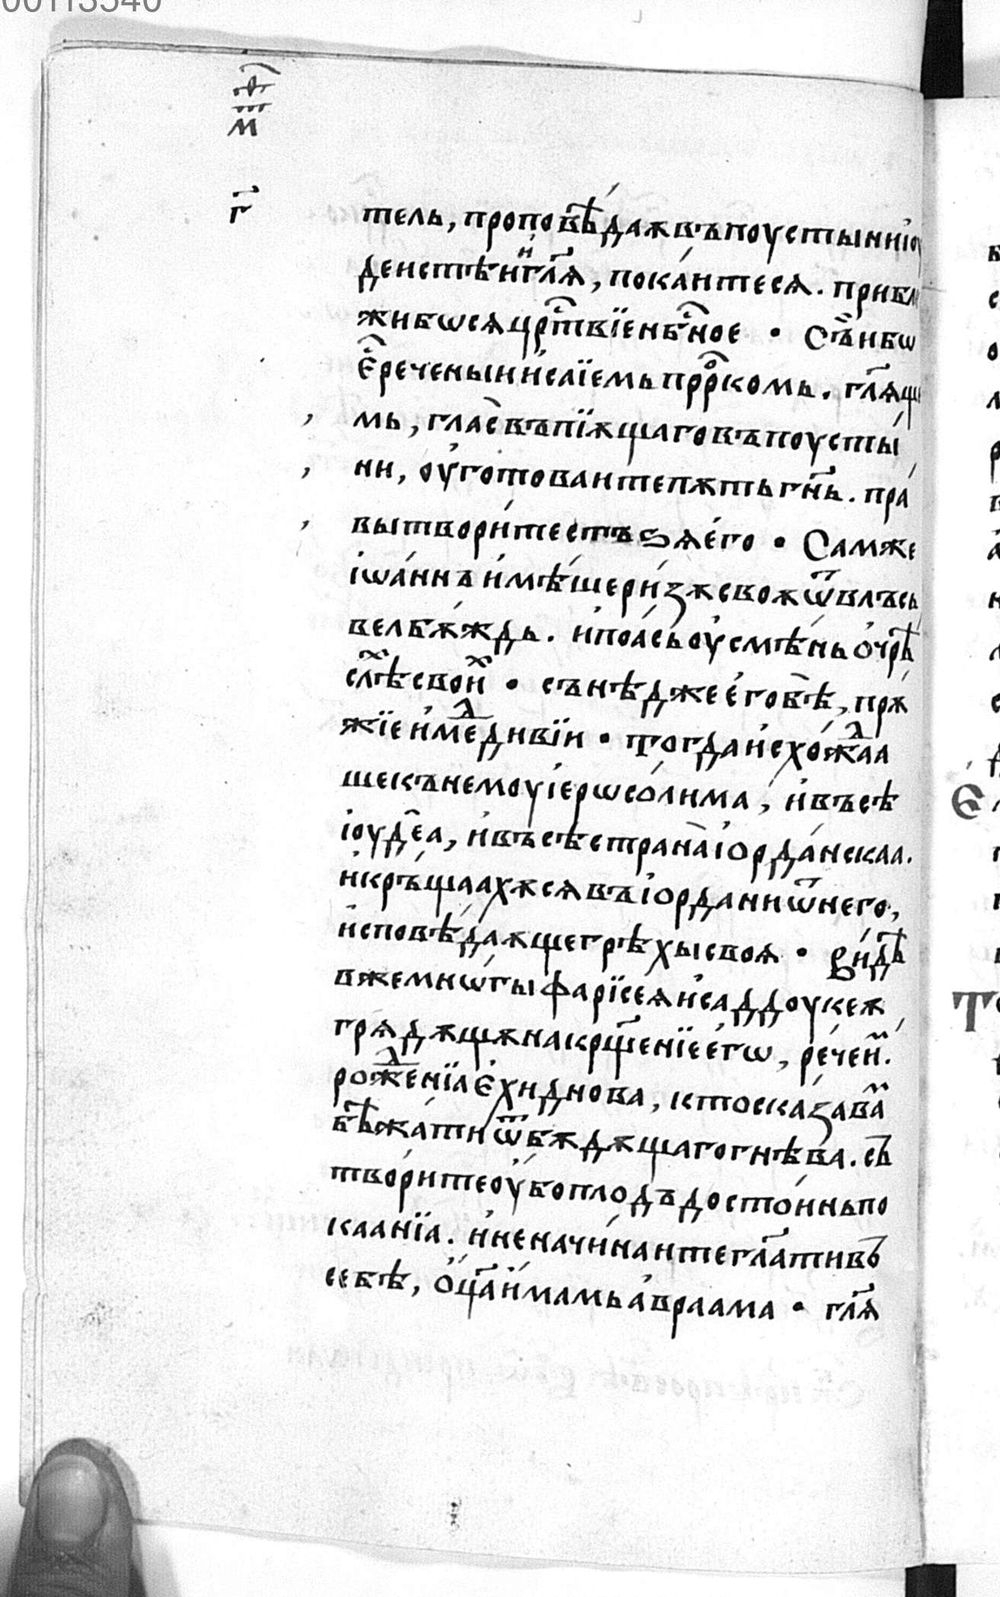 00113540
м
г҃
тель, проповѣ́даѫ въ поустыни іоу
деистѣи гл҃ѧ, пока́итесѧ. прибл
жибѡсѧ црⷭ҇твїе нбⷭ҇ное • Съ́ ибѡ
є҆́ⷭ реченыи и҆саїемь прⷪ҇ркомь. гл҃ѧщи
мь, глаⷭ҇ въпїѫщаго въ поусты́
ни, оу҆готоваите пѫть гн҃ь. пра́
вы твори́те стъѕѧ є҆го • Сам же
іѡа́ннъ и҆мѣ́ше ри́зѫ своѫ ѿ влъсь
велбѫ́ждь. и҆ поа́сь оусмѣ́нь о҆ чрѣ
слѣⷯ своиⷯ • сънѣд же є҆го бѣ̀, прѫ́
жїе и҆ меⷣ дивїи • тогда и҆схожⷣаа
ше къ немоу іерѡсо́лима, и҆ въсѣ
іоуде́а, и҆ въсѣ страна̀ іорда́нскаа.
и҆ кръщаахѫсѧ въ іордани ѿ него,
и҆сповѣ́даѫще грѣхы своѧ • Ви́дѣ
в же мнѡ́гы фарїсеѧ и҆ саддоукеѫ
грѧдѫщѫ на крщ҃енїе є҆гѡ, ре́че иⷨ.
рожⷣенїа є҆хиднова, кто сказа ваⷨ
бѣжа́ти ѿ бѫдѫщаго гнѣ́ва. съ
твори́те оу҆бо плодъ досто́инь по
каанїа. и҆ не начи́наите гл҃ати въ
себѣ, ѻ҆ц҃а и҆мамь а҆враама • гл҃ѧ